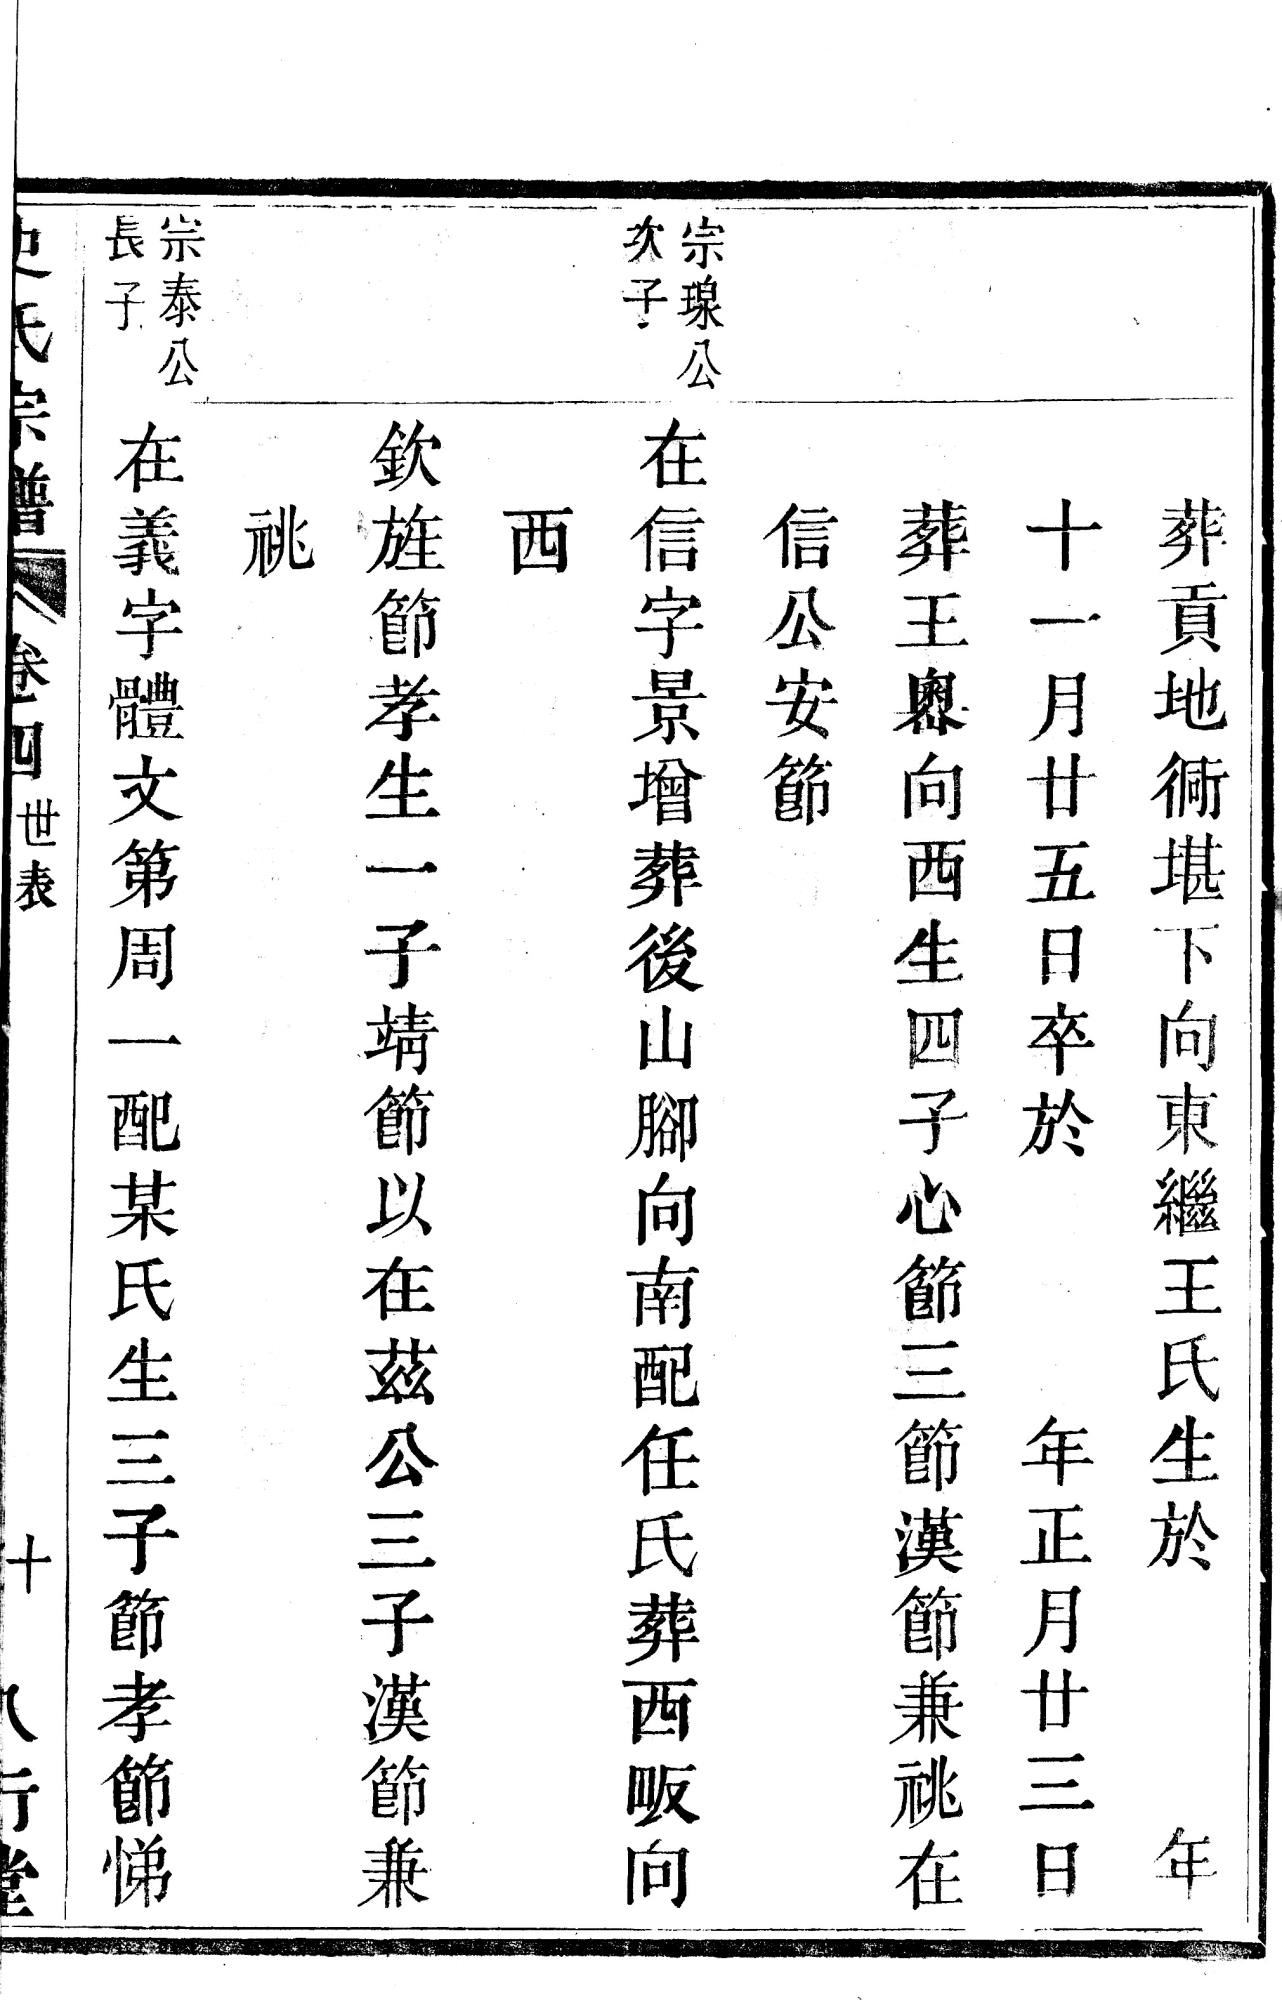 葬貢地衕堪下向東繼王氏生於　　　年
十一月廿五日卒於　　　年正月廿三日
葬王㠗向西生四子心節三節漢節兼祧在
信公安節
宗瑔公
次子
在信字景增葬後山腳向南配任氏葬西畈向
西
欽旌節孝生一子靖節以在茲公三子漢節兼
祧
宗泰公
長子
在義字體文第周一配某氏生三子節孝節悌
史氏宗譜
卷四
世表
十
八行堂